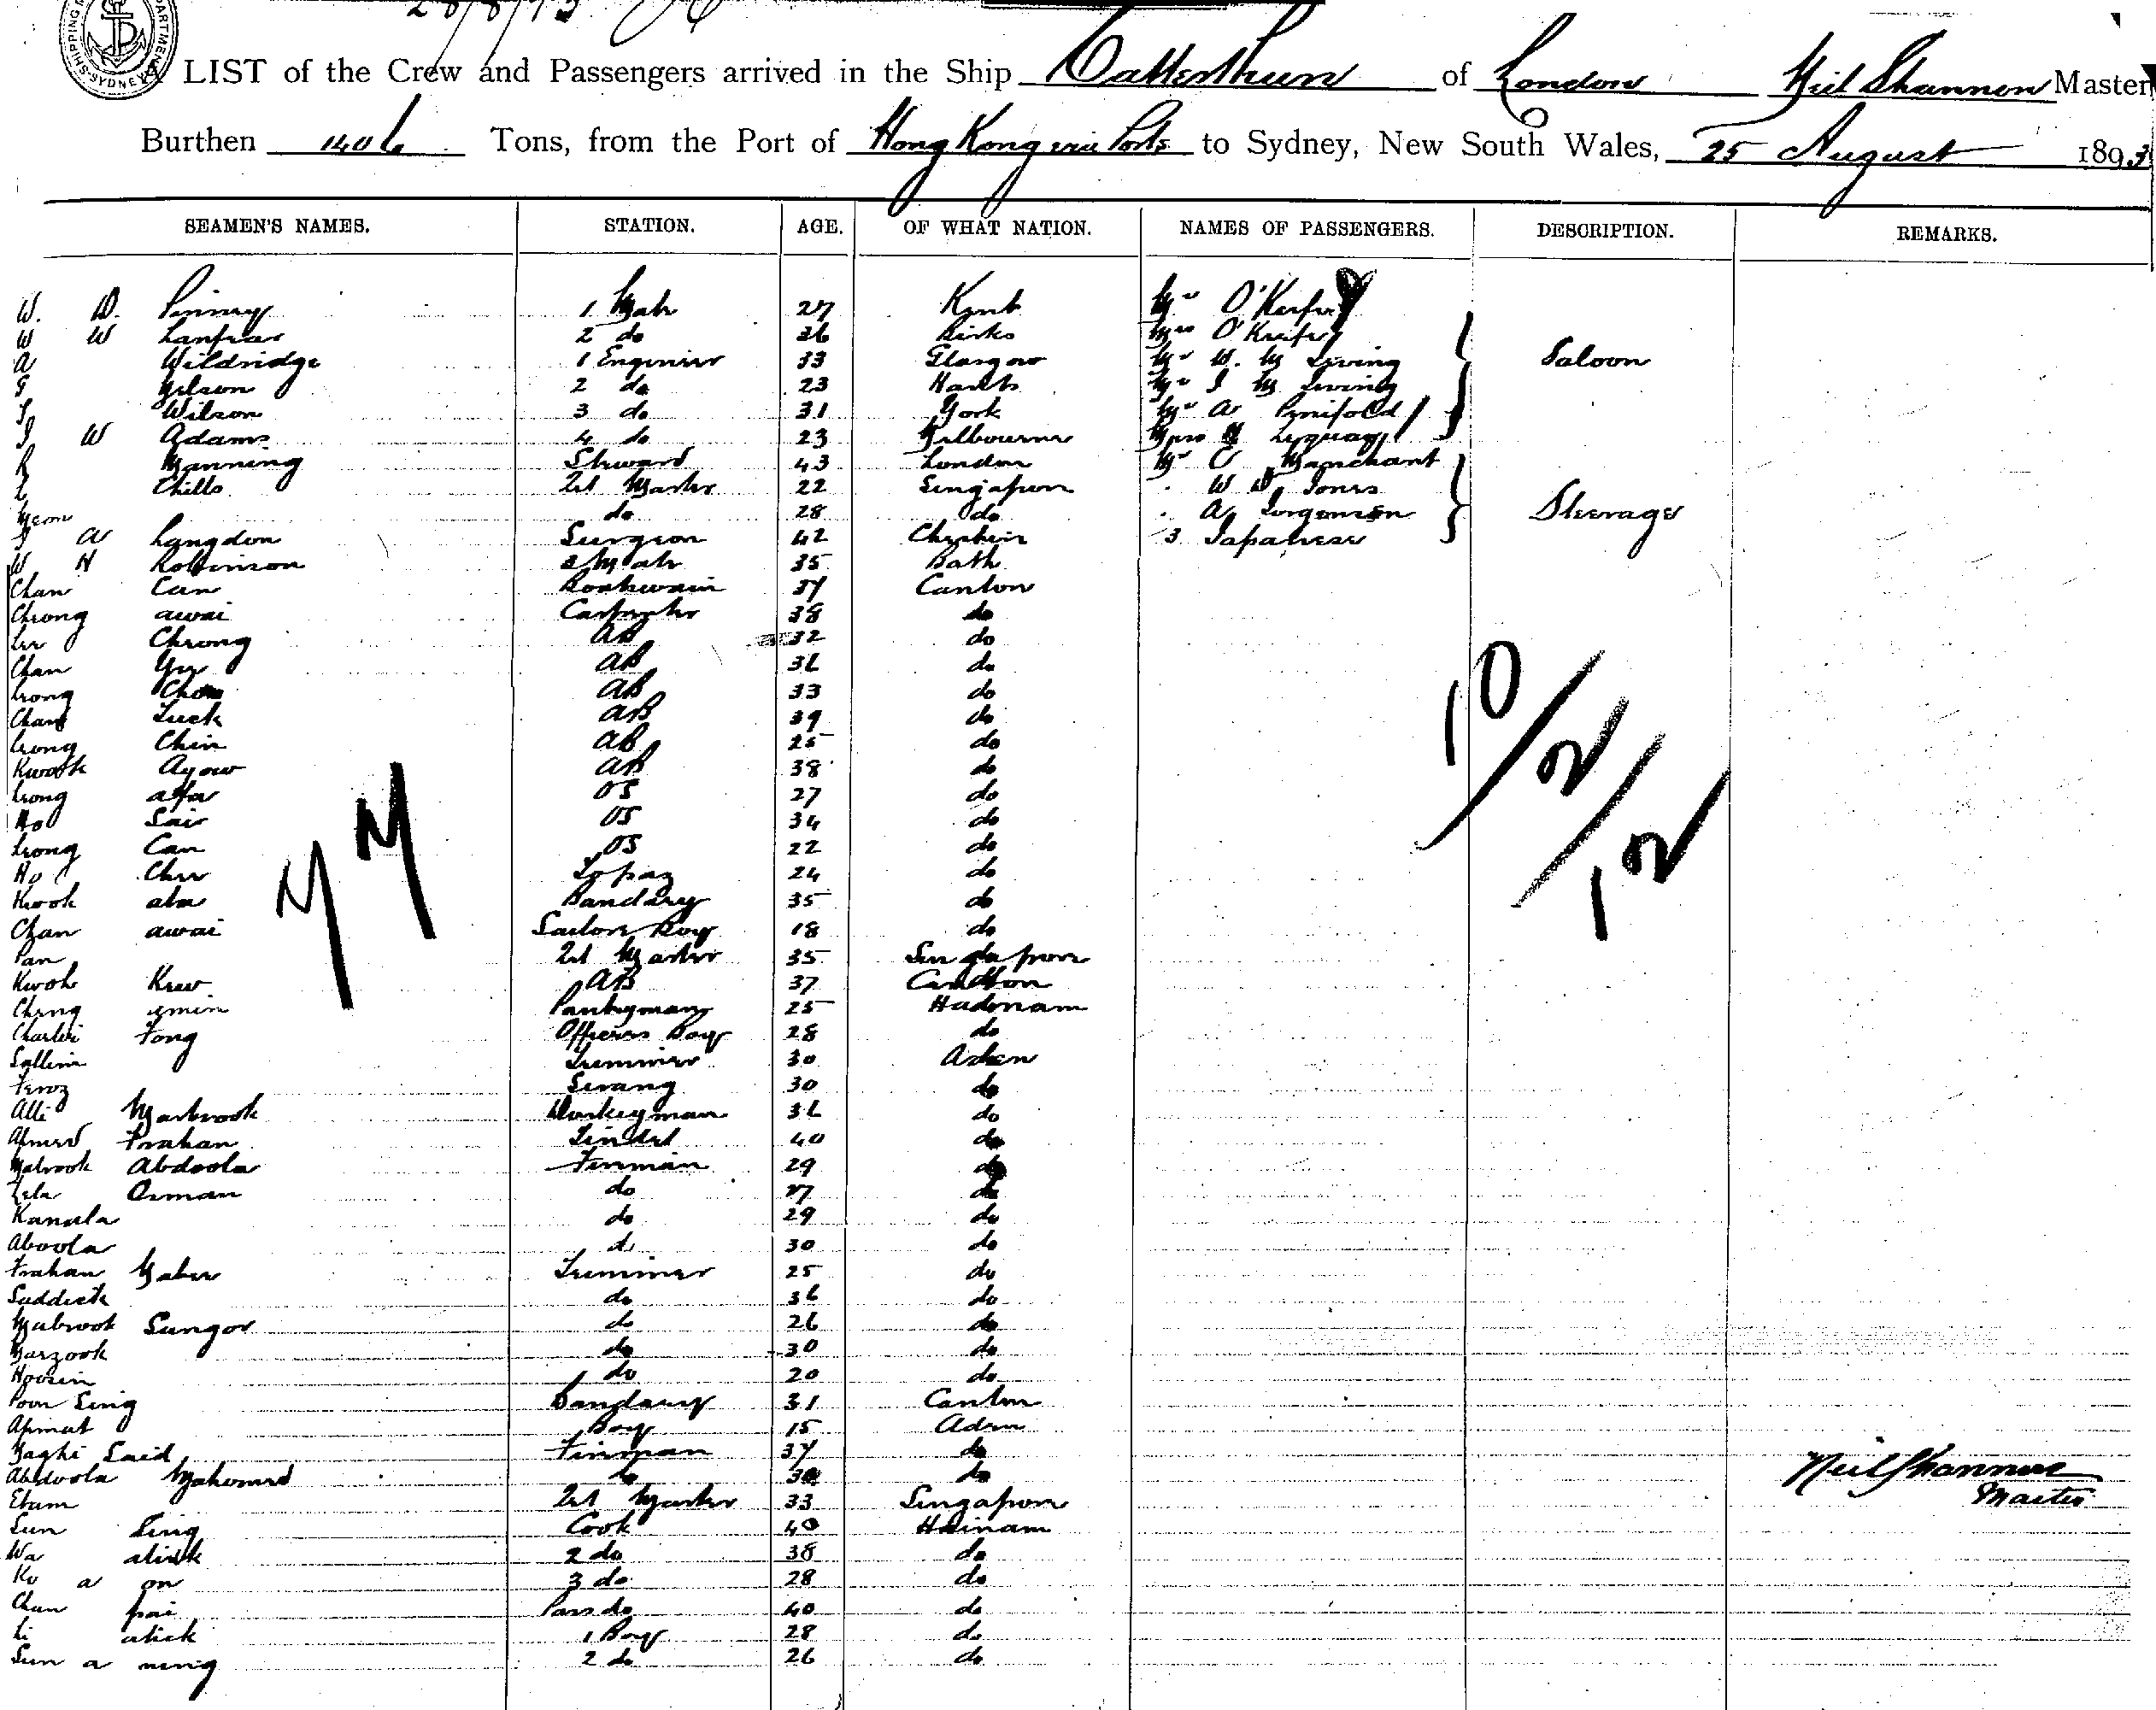 28/8/93
SHIPPING DEPARTMENT SYDNEY
A LIST of the Crew and Passengers arrived in the Ship Catterthun of London Neil Shannon Master,
Burthen 1406 Tons, from the Port of Hong Kong via Ports to Sydney, New South Wales, 25 August 1893
SEAMEN'S NAMES. STATION. AGE. OF WHAT NATION. NAMES OF PASSENGERS. DESCRIPTION. REMARKS.
W. D. Pinney 1 Mate 27 Kent Mr O'Keefe
W W Lanfear 2 do 26 Mrs O'Keefe
A Wildridge 1 Engineer 33 Glasgow Mr W. M Irving Saloon
G Nelson 2 do 23 Hants Mr J M Irving
Wilson 3 do 31 York Mr A Penifold
J W Adams 4 do 23 Melbourne
Manning Steward 43 London Mr C Marchant
Chills Qrt Master 22 Singapore W D Jones
do 28 do A Jorgensen Steerage
A Langdon Surgeon 42 3 Japanese
W H Robinson 3 Mate 35 Bath
Chan Can Boatswain 37 Canton
Cheong awai Carpenter 38 do
Lee Cheong AB 32 do
Chan Yee AB 36 do
Leong Chow AB 33 do
Chang Luck AB 39 do
Leong Chin AB 25 do
Kwook Ayow AB 38 do
Leong afar OS 27 do
Ho Sair OS 34 do
Leong Can OS 22 do
Ho Chee Topaz 24 do
Kwok Bandary 35 do
Chan awai Sailors Boy 18 do
Pan Qrt Master 35 Singapore
Kwok Kew AB 37 Canton
Cheng Pantryman 25 Hainam
Charlie Fong Officers Boy 28 do
Sallem Trimmer 30 Aden
Feroz Serang 30 do
Alli Marbrook Donkeyman 36 do
Ahmed Frahan Tindal 40 do
Mabrook Abdoola Fireman 29 do
Osman do 27 do
Kanala do 29 do
Aboola do 30 do
Frahan Maber Trimmer 25 do
Saddick do 36 do
Mabrook Sungor do 26 do
Marzook do 30 do
Hoosein do 20 do
Poon Sing Bandary 31 Canton
Ahmat Boy 15 Aden
Said Fireman 37 do
Abdoola Mahomed do do
Etam Qrt Master 33 Singapore
Sun Sing Cook 40 Hainam
Wa 2 do 38 do
Ku a on 3 do 28 do
Chun pai Pass do 40 do
Li atick 1 Boy 28 do
Sun a ning 2 do 26 do
10/2/12
Neil Shannon
Master